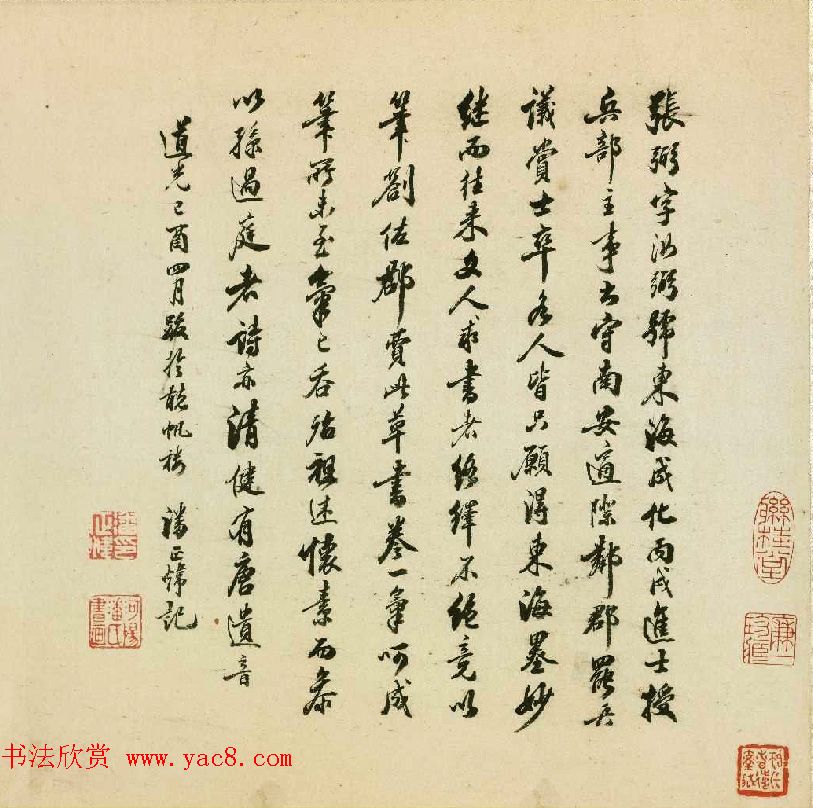 張弼字汝弼號東海成化丙戌進士授
兵部主事出守南安適隣郡罷兵
議賞士卒多人皆只願得東海墨妙
繼而往來文人求書者絡繹不絕竟以
筆劄佐郡費此草書卷一氣呵成
筆所未至氣已吞殆祖述懷素而參
以孫過庭者詩亦清健有唐遺音
道光己酉四月跋於聽帆樓 潘正煒記
書法欣赏 www.yac8.com